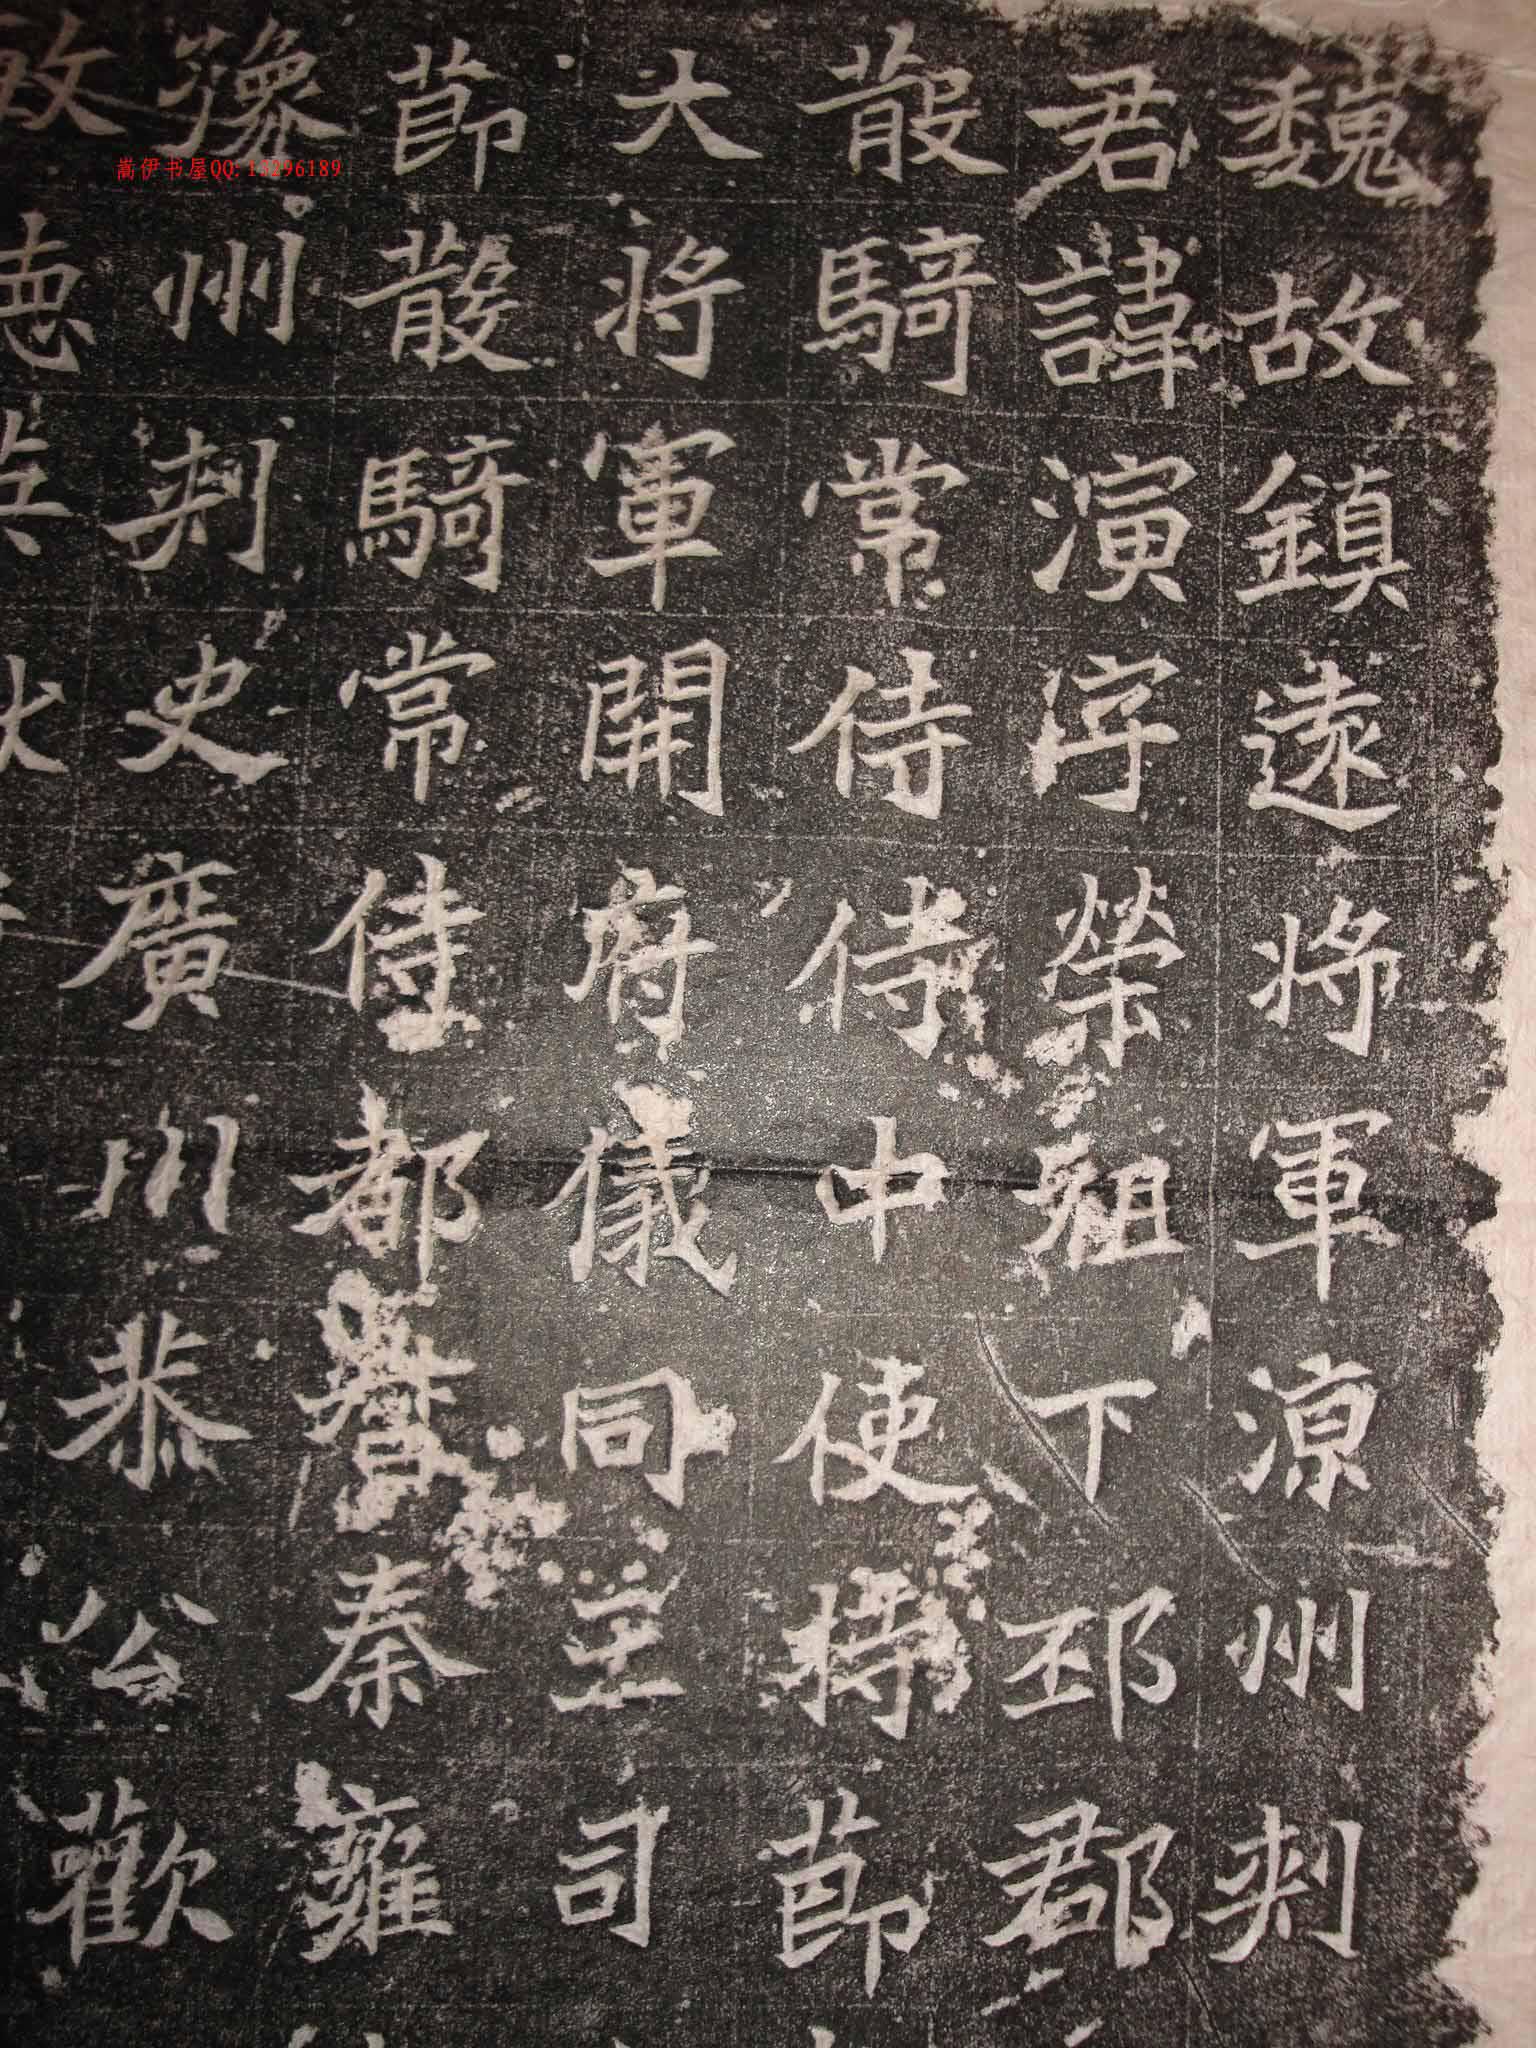 魏故鎮遠將軍涼州刺
君諱演字榮祖下邳郡
散騎常侍侍中使持節
大將軍開府儀同三司
節散騎常侍都督秦雍
豫州刺史廣川恭公歡
嵩伊书屋QQ:13296189